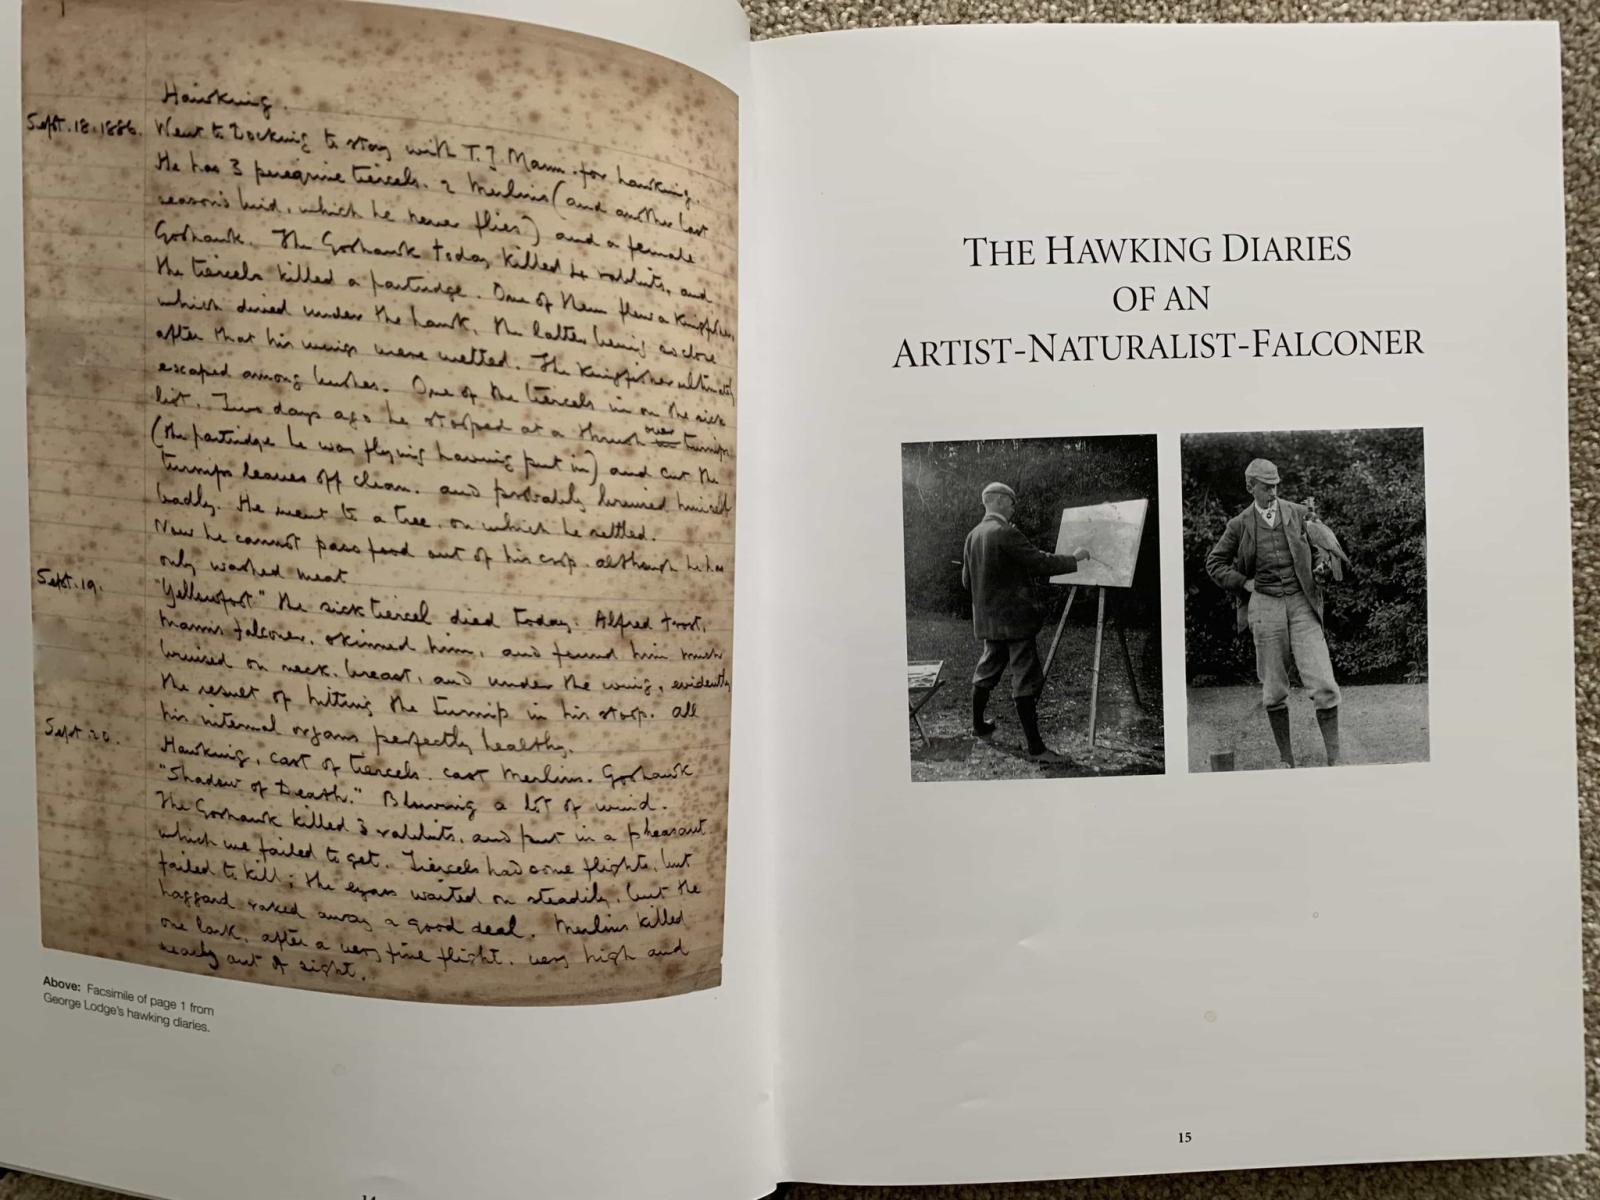 Hawking.
Sept. 18. 1886. Went to Docking to stay with T. J. Mann. for hawking.
He has 3 peregrine tiercels. 2 Merlins (and another last
season's bird, which he never flies) and a female
Goshawk. The Goshawk today killed 4 rabbits, and
the tiercels killed a partridge. One of them flew a Kingfisher,
which dived under the hawk, the latter being so close
after that his wings were wetted. The Kingfisher ultimately
escaped among bushes. One of the tiercels is on the sick
list. Two days ago he stooped at a thrush over turnips
(the partridge he was flying having put in) and cut the
turnips leaves off clean. and probably bruised himself
badly. He went to a tree, on which he settled.
Now he cannot pass food out of his crop. although he has
only washed meat
Sept. 19. "Yellowfoot" the sick tiercel died today. Alfred Frost,
Mann's falconer, skinned him, and found him much
bruised on neck, breast, and under the wing, evidently
the result of hitting the turnip in his stoop. All
his internal organs perfectly healthy.
Sept. 20. Hawking, cast of tiercels. cast Merlins. Goshawk
"Shadow of Death." Blowing a lot of wind.
The Goshawk killed 3 rabbits, and put in a pheasant
which we failed to get. Tiercels had some flights, but
failed to kill; the eyass waited on steadily, but the
haggard raked away a good deal. Merlins killed
one lark, after a very fine flight. very high and
nearly out of sight.
Above: Facsimile of page 1 from
George Lodge's hawking diaries.
14
THE HAWKING DIARIES
OF AN
ARTIST-NATURALIST-FALCONER
15